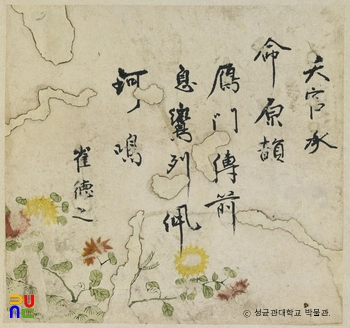 天官承
命原韻
鴈門傳前
息鸞列佩
珂鳴
崔德之
ⓒ 성균관대학교 박물관.